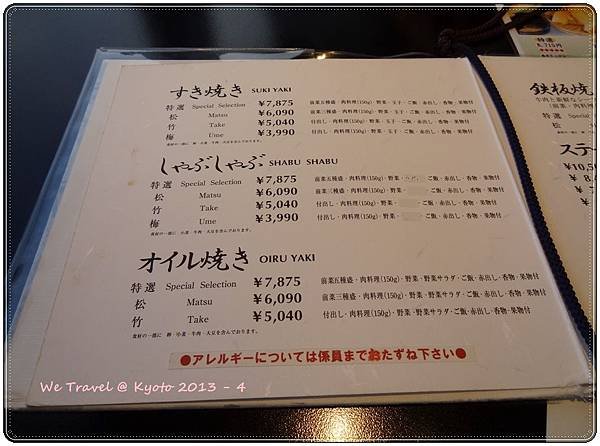 すき焼き SUKI YAKI
特選 Special Selection ¥7,875 前菜五種盛・肉料理(150g)・野菜・玉子・ご飯・赤出し・香物・果物付
松 Matsu ¥6,090 前菜三種盛・肉料理(150g)・野菜・玉子・ご飯・赤出し・香物・果物付
竹 Take ¥5,040 付出し・肉料理(150g)・野菜・玉子・ご飯・赤出し・香物・果物付
梅 Ume ¥3,990 付出し・肉料理(150g)・野菜・玉子・ご飯・赤出し・香物・果物付
食材の一部に 卵・小麦・牛肉・大豆を含んでおります。
しゃぶしゃぶ SHABU SHABU
特選 Special Selection ¥7,875 前菜五種盛・肉料理(150g)・野菜・ ご飯・赤出し・香物・果物付
松 Matsu ¥6,090 前菜三種盛・肉料理(150g)・野菜・ ご飯・赤出し・香物・果物付
竹 Take ¥5,040 付出し・肉料理(150g)・野菜・ ご飯・赤出し・香物・果物付
梅 Ume ¥3,990 付出し・肉料理(150g)・野菜・ ご飯・赤出し・香物・果物付
食材の一部に 小麦・牛肉・大豆を含んでおります。
オイル焼き OIRU YAKI
特選 Special Selection ¥7,875 前菜五種盛・肉料理(150g)・野菜・野菜サラダ・ご飯・赤出し・香物・果物付
松 Matsu ¥6,090 前菜三種盛・肉料理(150g)・野菜・野菜サラダ・ご飯・赤出し・香物・果物付
竹 Take ¥5,040 付出し・肉料理(150g)・野菜・野菜サラダ・ご飯・赤出し・香物・果物付
食材の一部に 卵・小麦・牛肉・大豆を含んでおります。
●アレルギーについては係員までおたずね下さい●
特選
鉄板焼
ステー
¥10,50
We Travel @ Kyoto 2013 - 4